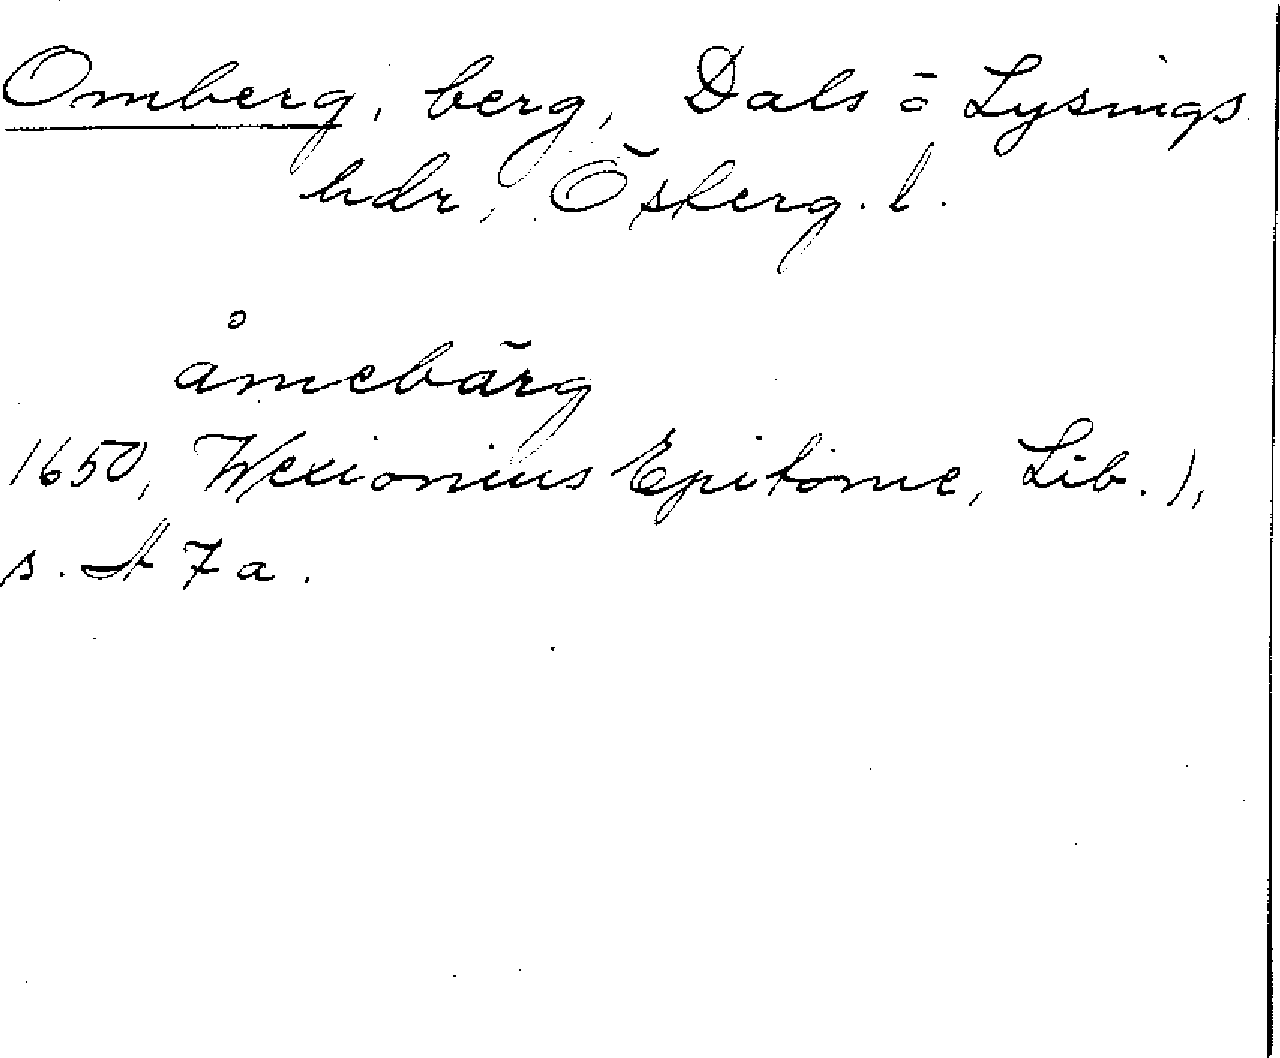 Omberg, berg, Dals o Lysings
hdr, Österg. l.
åmebärg
1650, Wexionius Epitome, Lib. 1,
s. A 7 a.